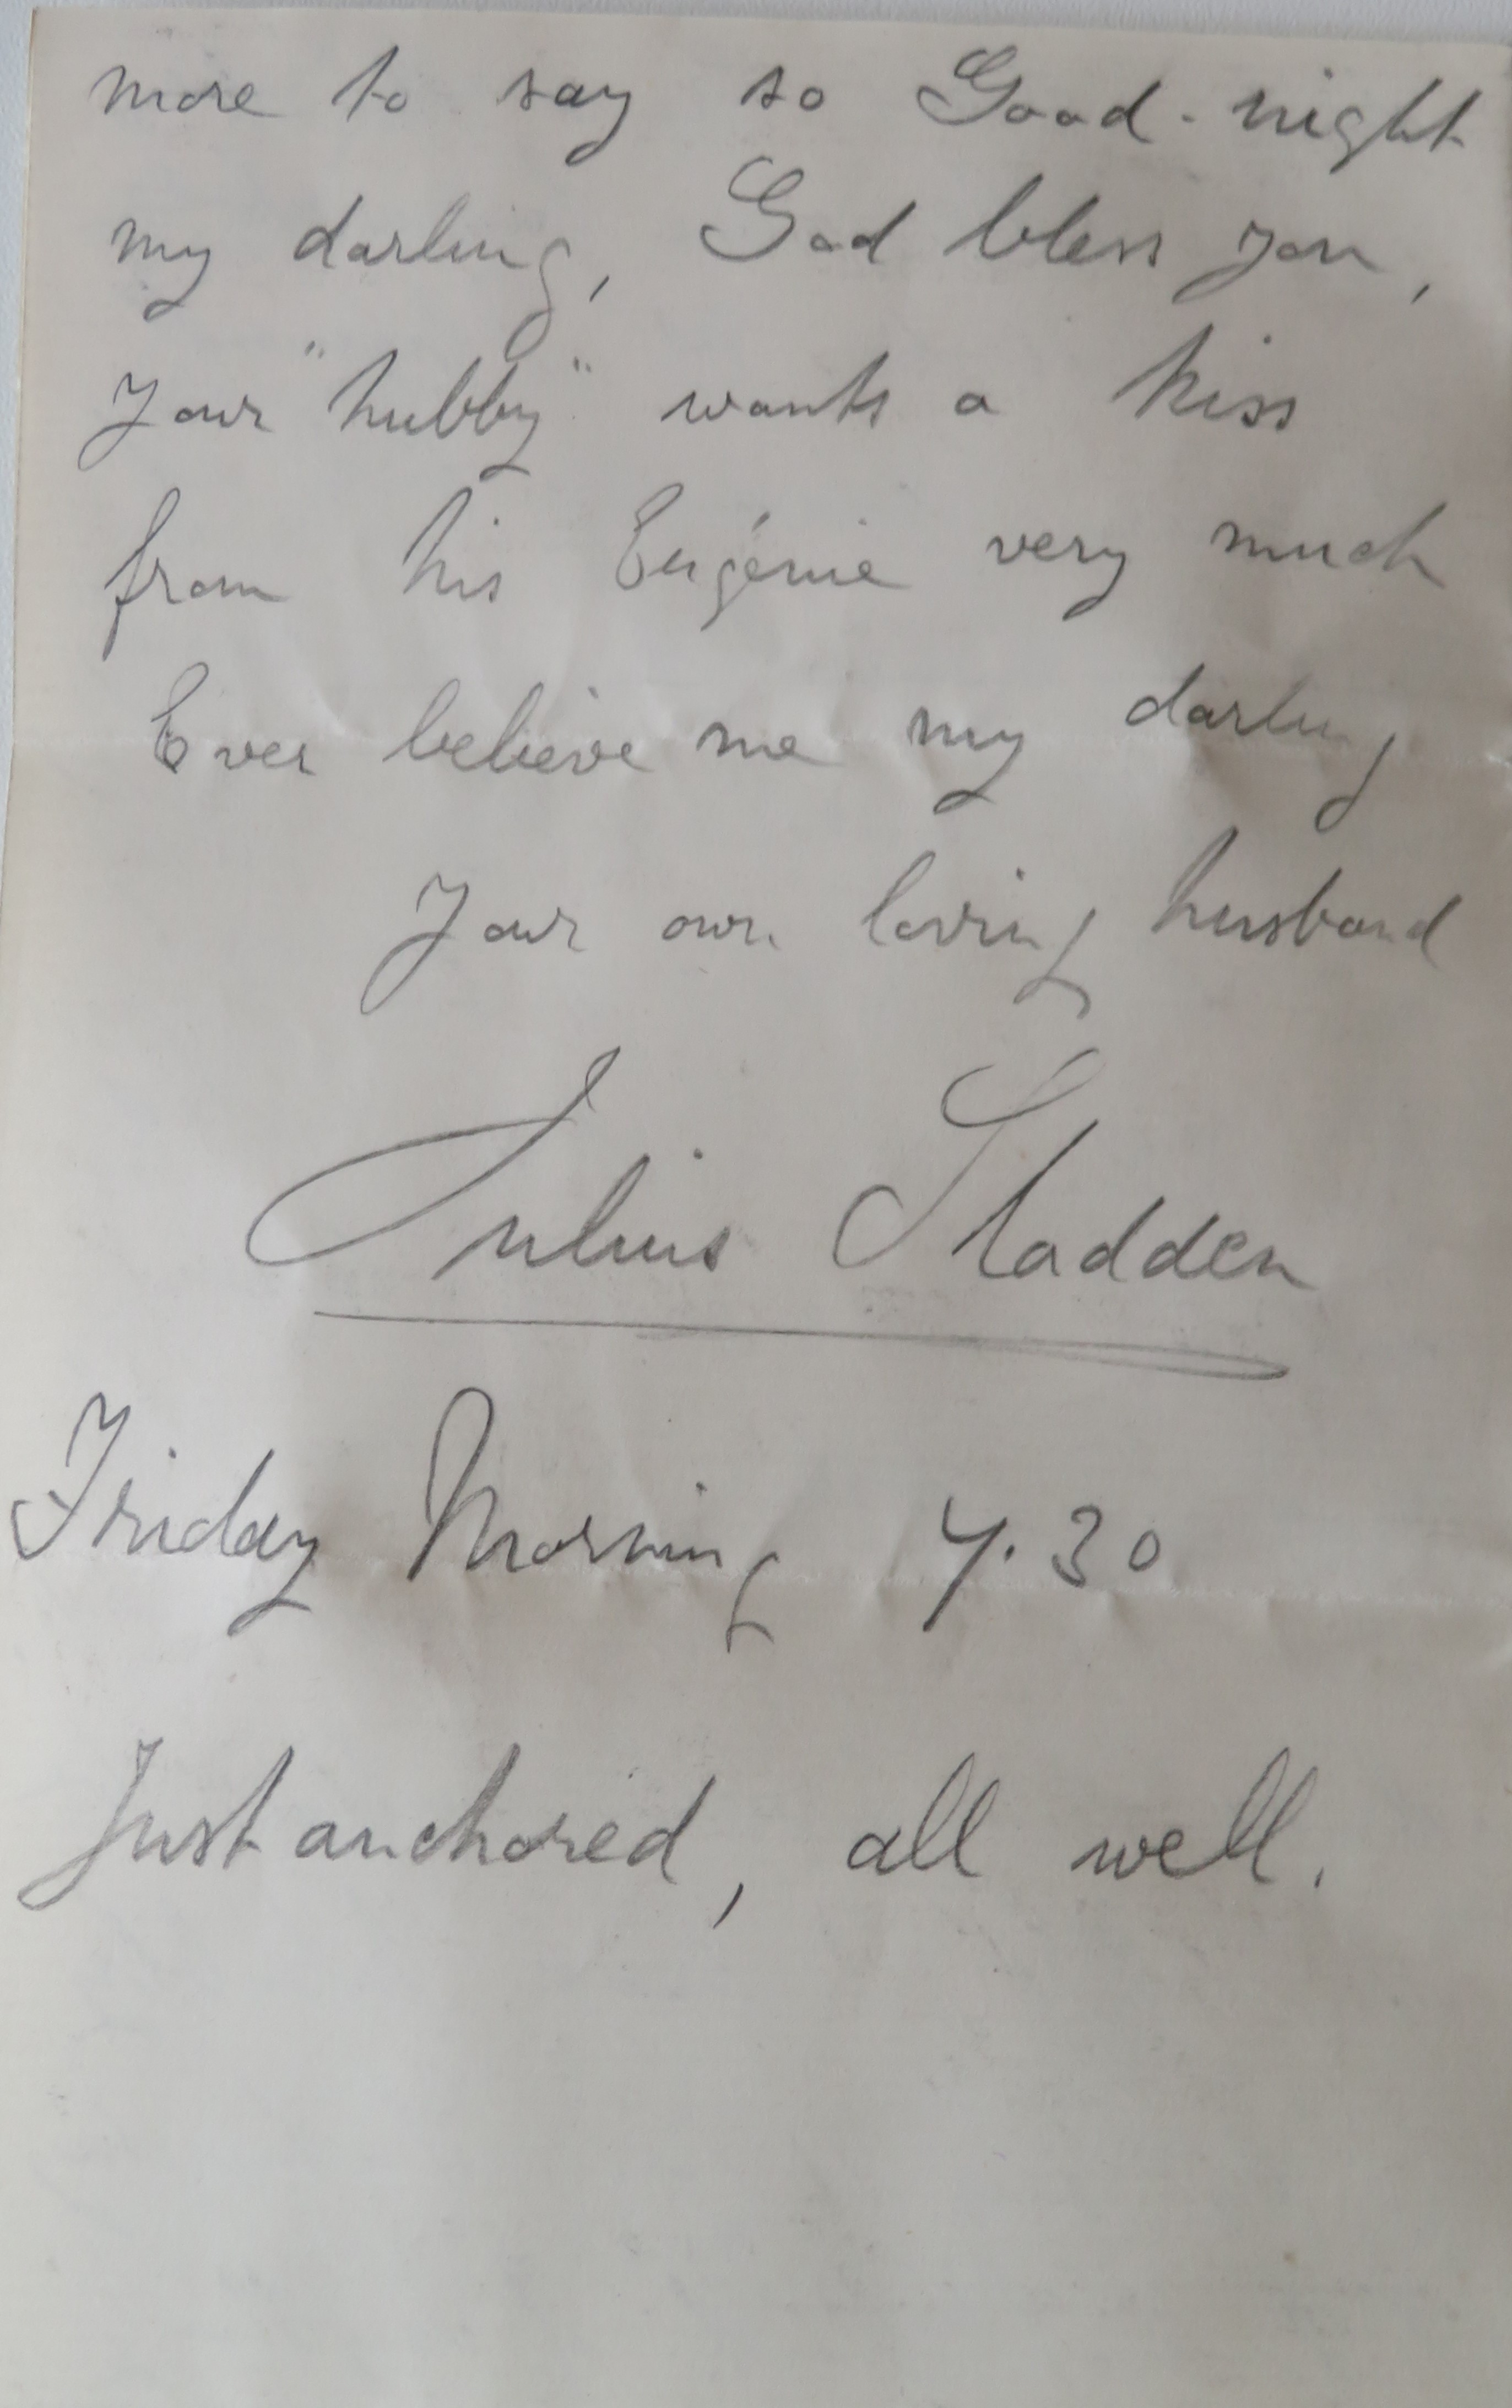 more to say so Good-night
my darling, God bless you,
your "hubby" wants a kiss
from his Eugénie very much
Ever believe me my darling
Your own loving husband
Julius Sladden
Friday Morning 4.30
Just anchored, all well.